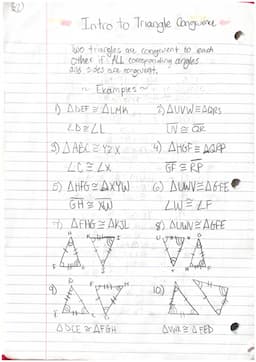 Intro to Triangle Congruence
Two triangles are congruent to each
other if ALL corresponding angles
and sides are congruent.
~ Examples ~
1) △DEF ≅ △LMK 2) △UVW ≅ △QRS
∠D ≅ ∠L UV ≅ QR
3) △ABC ≅ YZX 4) △HGF ≅ △QRP
∠C ≅ ∠X GF ≅ RP
5) △HFG ≅ △XYW 6) △UWV ≅ △GFE
GH ≅ XW ∠W ≅ ∠F
7) △FHG ≅ △KJL 8) △UWV ≅ △GFE
9) 10)
△DCE ≅ △FGH △VWX ≅ △FED